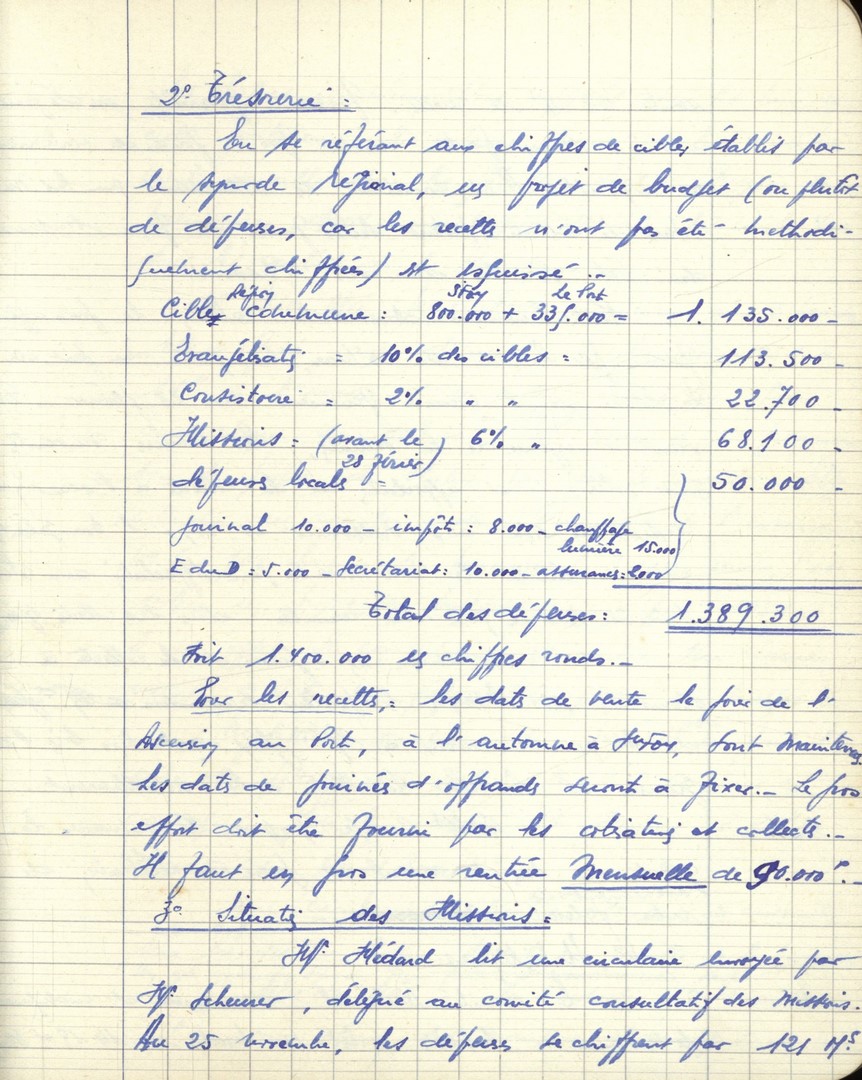 2° Trésorerie :
En se référant aux chiffres de cibles établis par
le synode régional, un projet de budget (ou plutôt
de dépenses, car les recettes n'ont pas été méthodi-
quement chiffrées) est esquissé :
Région Sfax Le Port
Cible commune : 800.000 + 335.000 = 1.135.000 -
Evangélisation = 10% des cibles = 113.500 -
Consistoire = 2% " " 22.700 -
Missions = (avant le 6% " 68.100 -
28 février)
dépenses locales = 50.000 -
Journal 10.000 - impôts : 8.000 - chauffage
lumière 15.000
E du D : 5.000 - Secrétariat : 10.000 - assurances : 2000
Total des dépenses : 1.389.300
Soit 1.400.000 en chiffres ronds. -
Pour les recettes, : les dates de vente le jour de l'
Ascension au Port, à l'automne à , sont maintenues
Les dates de journées d'offrandes seront à fixer. - Le gros
effort doit être fourni par les cotisations et collectes. -
Il faut en gros une rentrée Mensuelle de 90.000 F. -
3° Situation des Missions :
Mr Médard lit une circulaire envoyée par
Mr Scheurer, délégué au comité consultatif des Missions.
Au 25 novembre, les dépenses se chiffrent par 121 Ms